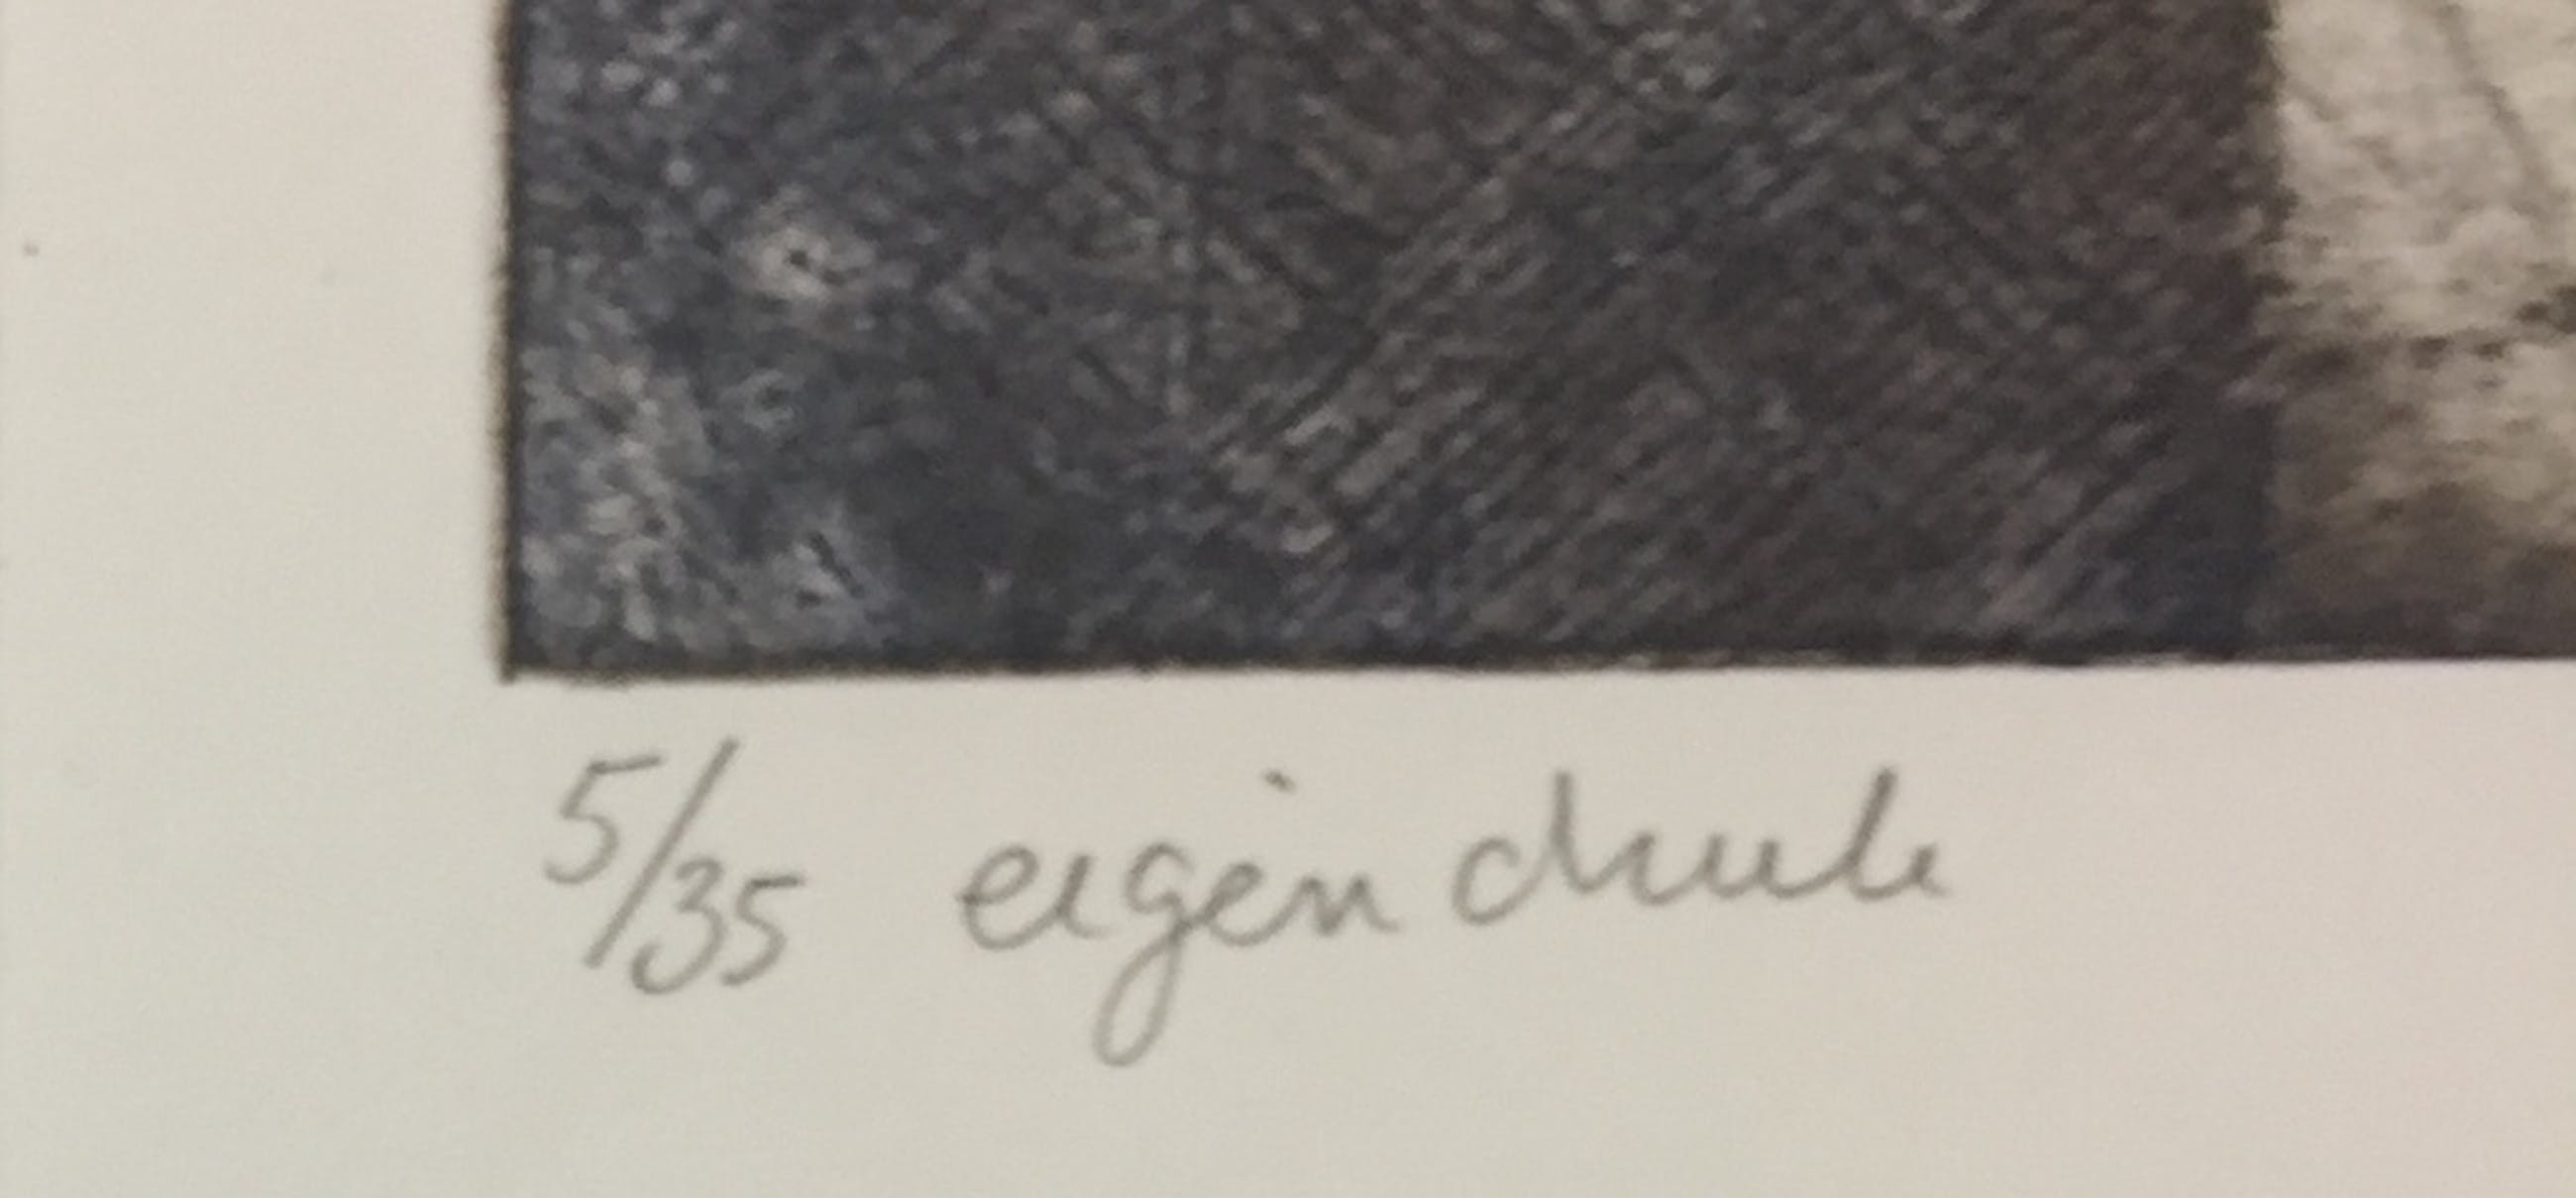 5/35 eigen druk